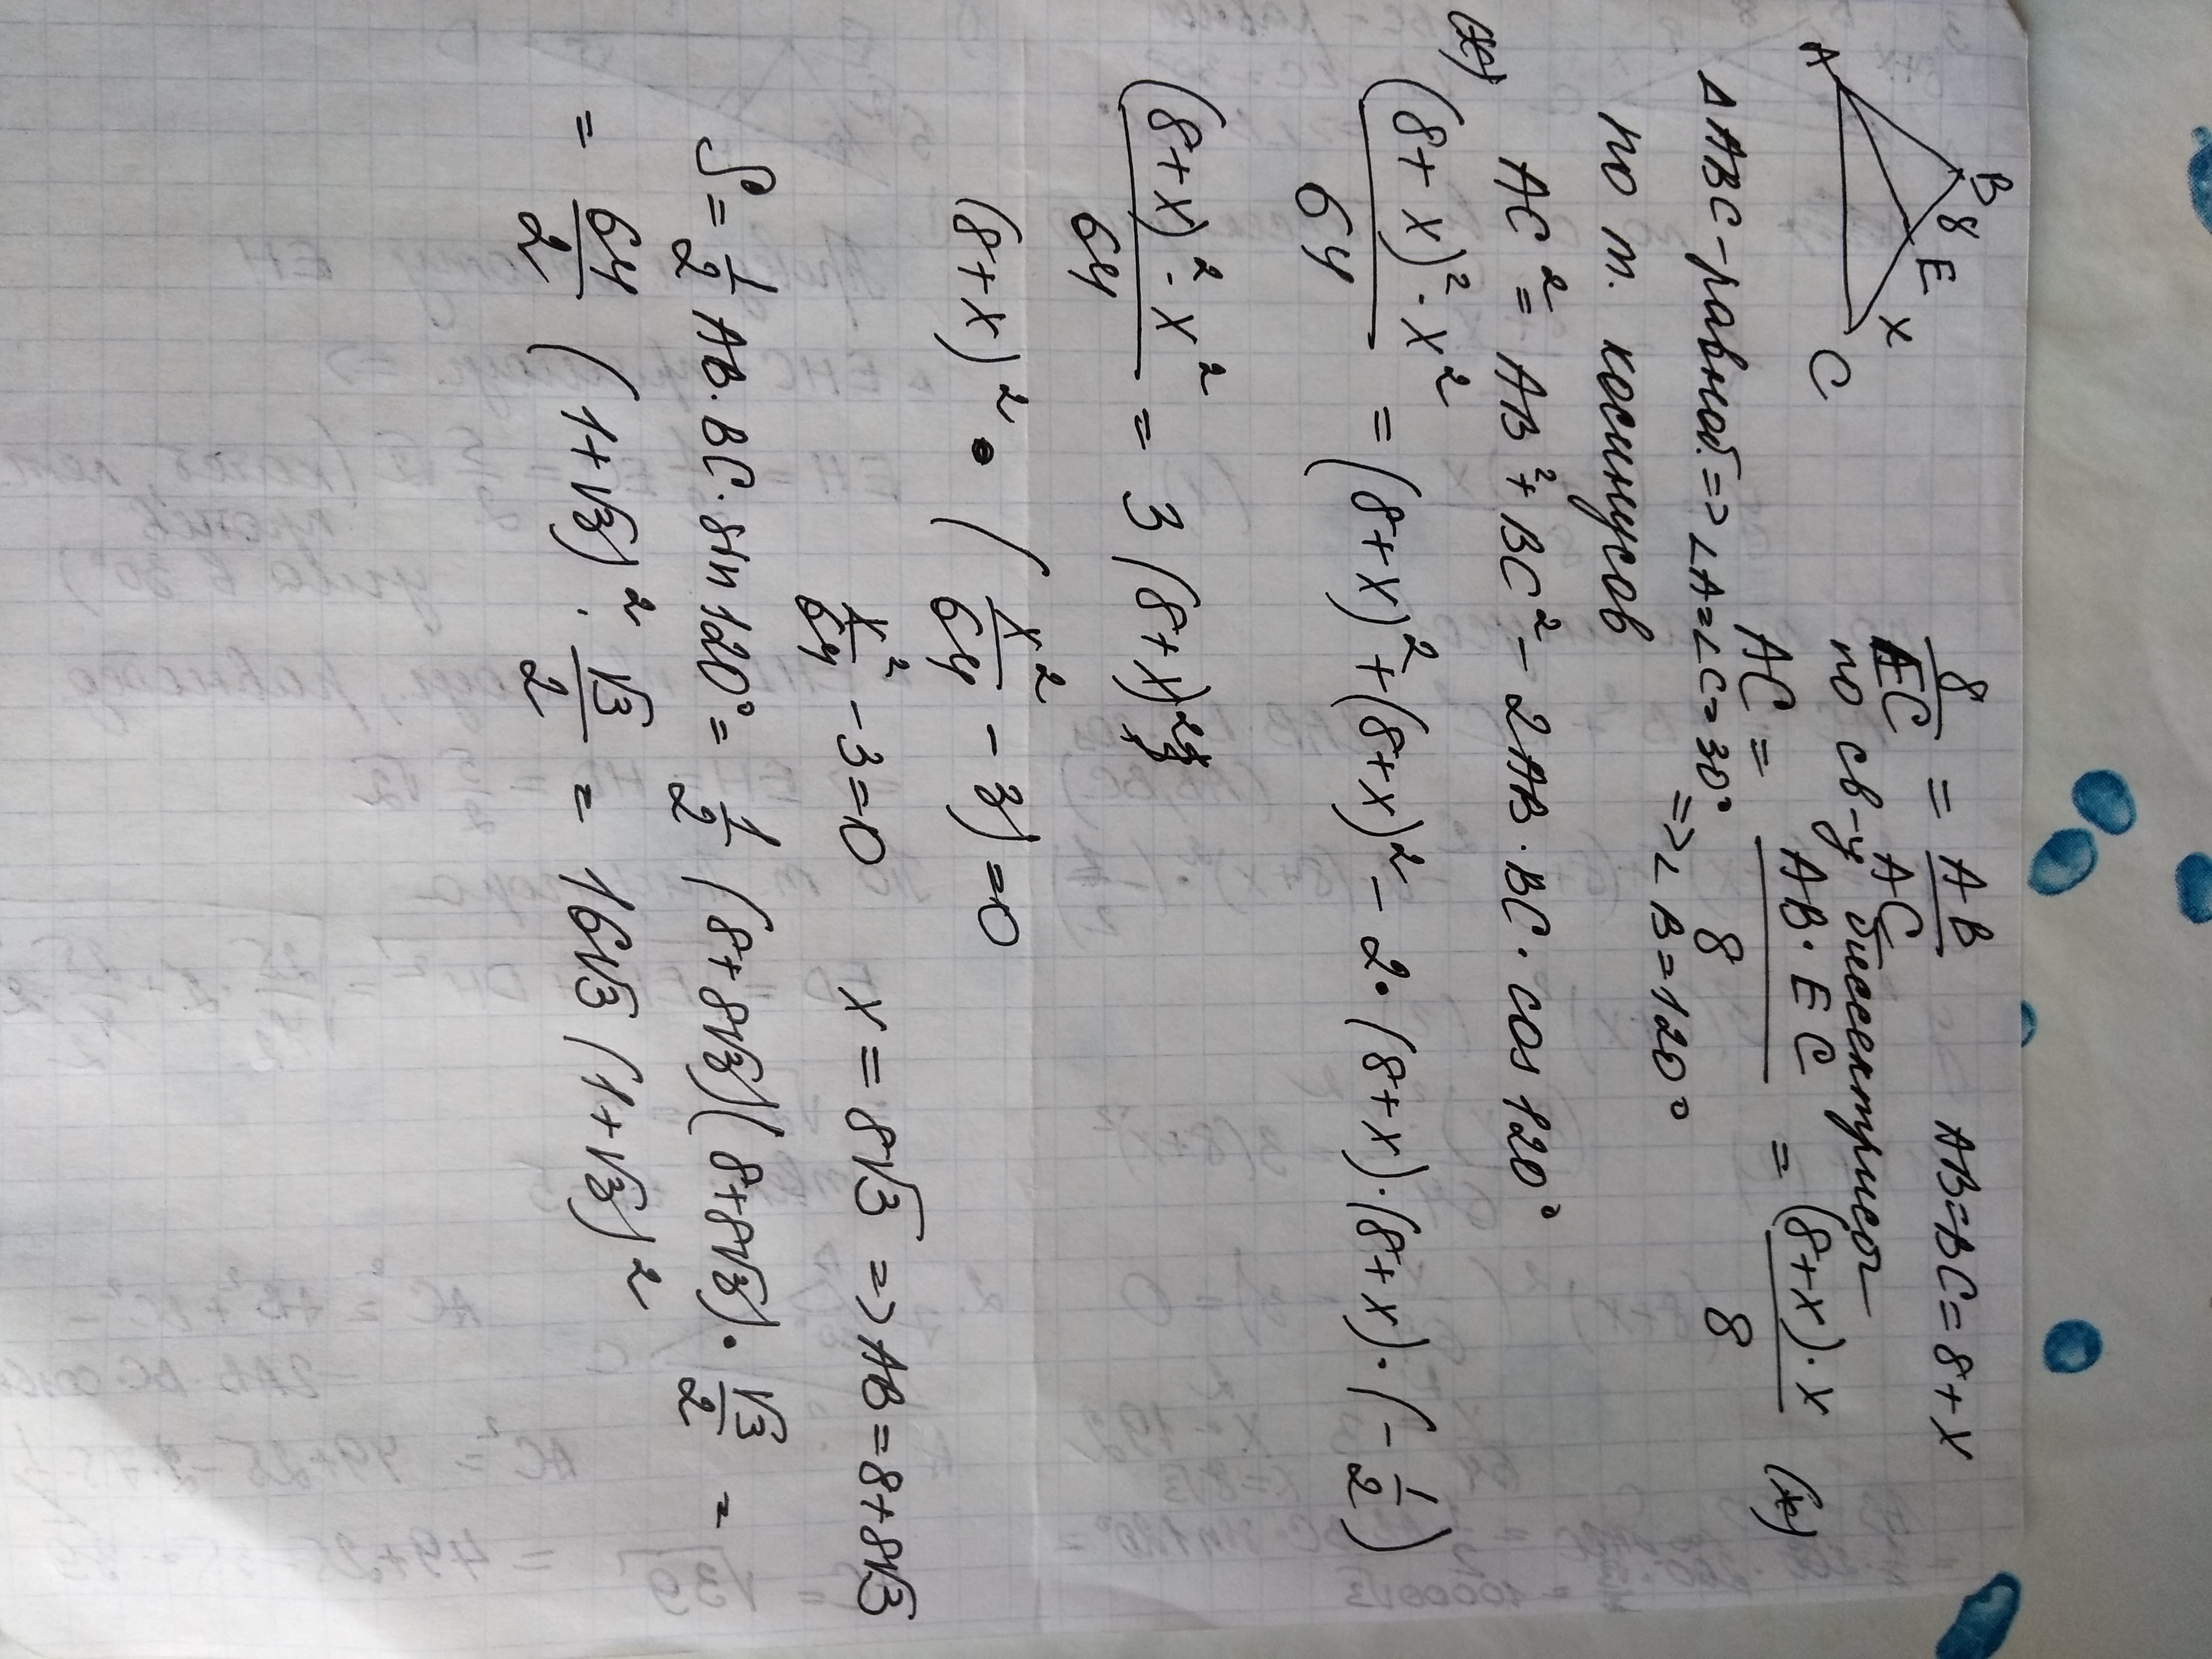 B
8
E
x
A
C
8/EC = AB/AC AB=BC=8+x
по св-у биссектрисы
AC = AB·EC/8 = (8+x)·x/8 (*)
△ABC-равноб.=>∠A=∠C=30°
=>∠B=120°
по т. косинусов
AC² = AB²+BC²-2AB·BC·cos120°
(*)
(8+x)²·x²/64 = (8+x)²+(8+x)²-2·(8+x)·(8+x)·(-1/2)
(8+x)²·x²/64 = 3(8+x)²
(8+x)²·(x²/64 - 3)=0
x²/64 -3=0 x=8√3 =>AB=8+8√3
S=1/2 AB·BC·sin120°= 1/2 (8+8√3)(8+8√3)·√3/2 =
= 64/2 (1+√3)²·√3/2 = 16√3(1+√3)²